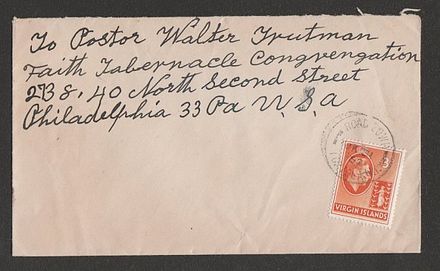 To Postor Walter Trutman
Faith Tabernacle Congvengation
2738.40 North Second Street
Philadelphia 33 Pa U.S.a
ROAD TOWN
VIRGIN ISLANDS